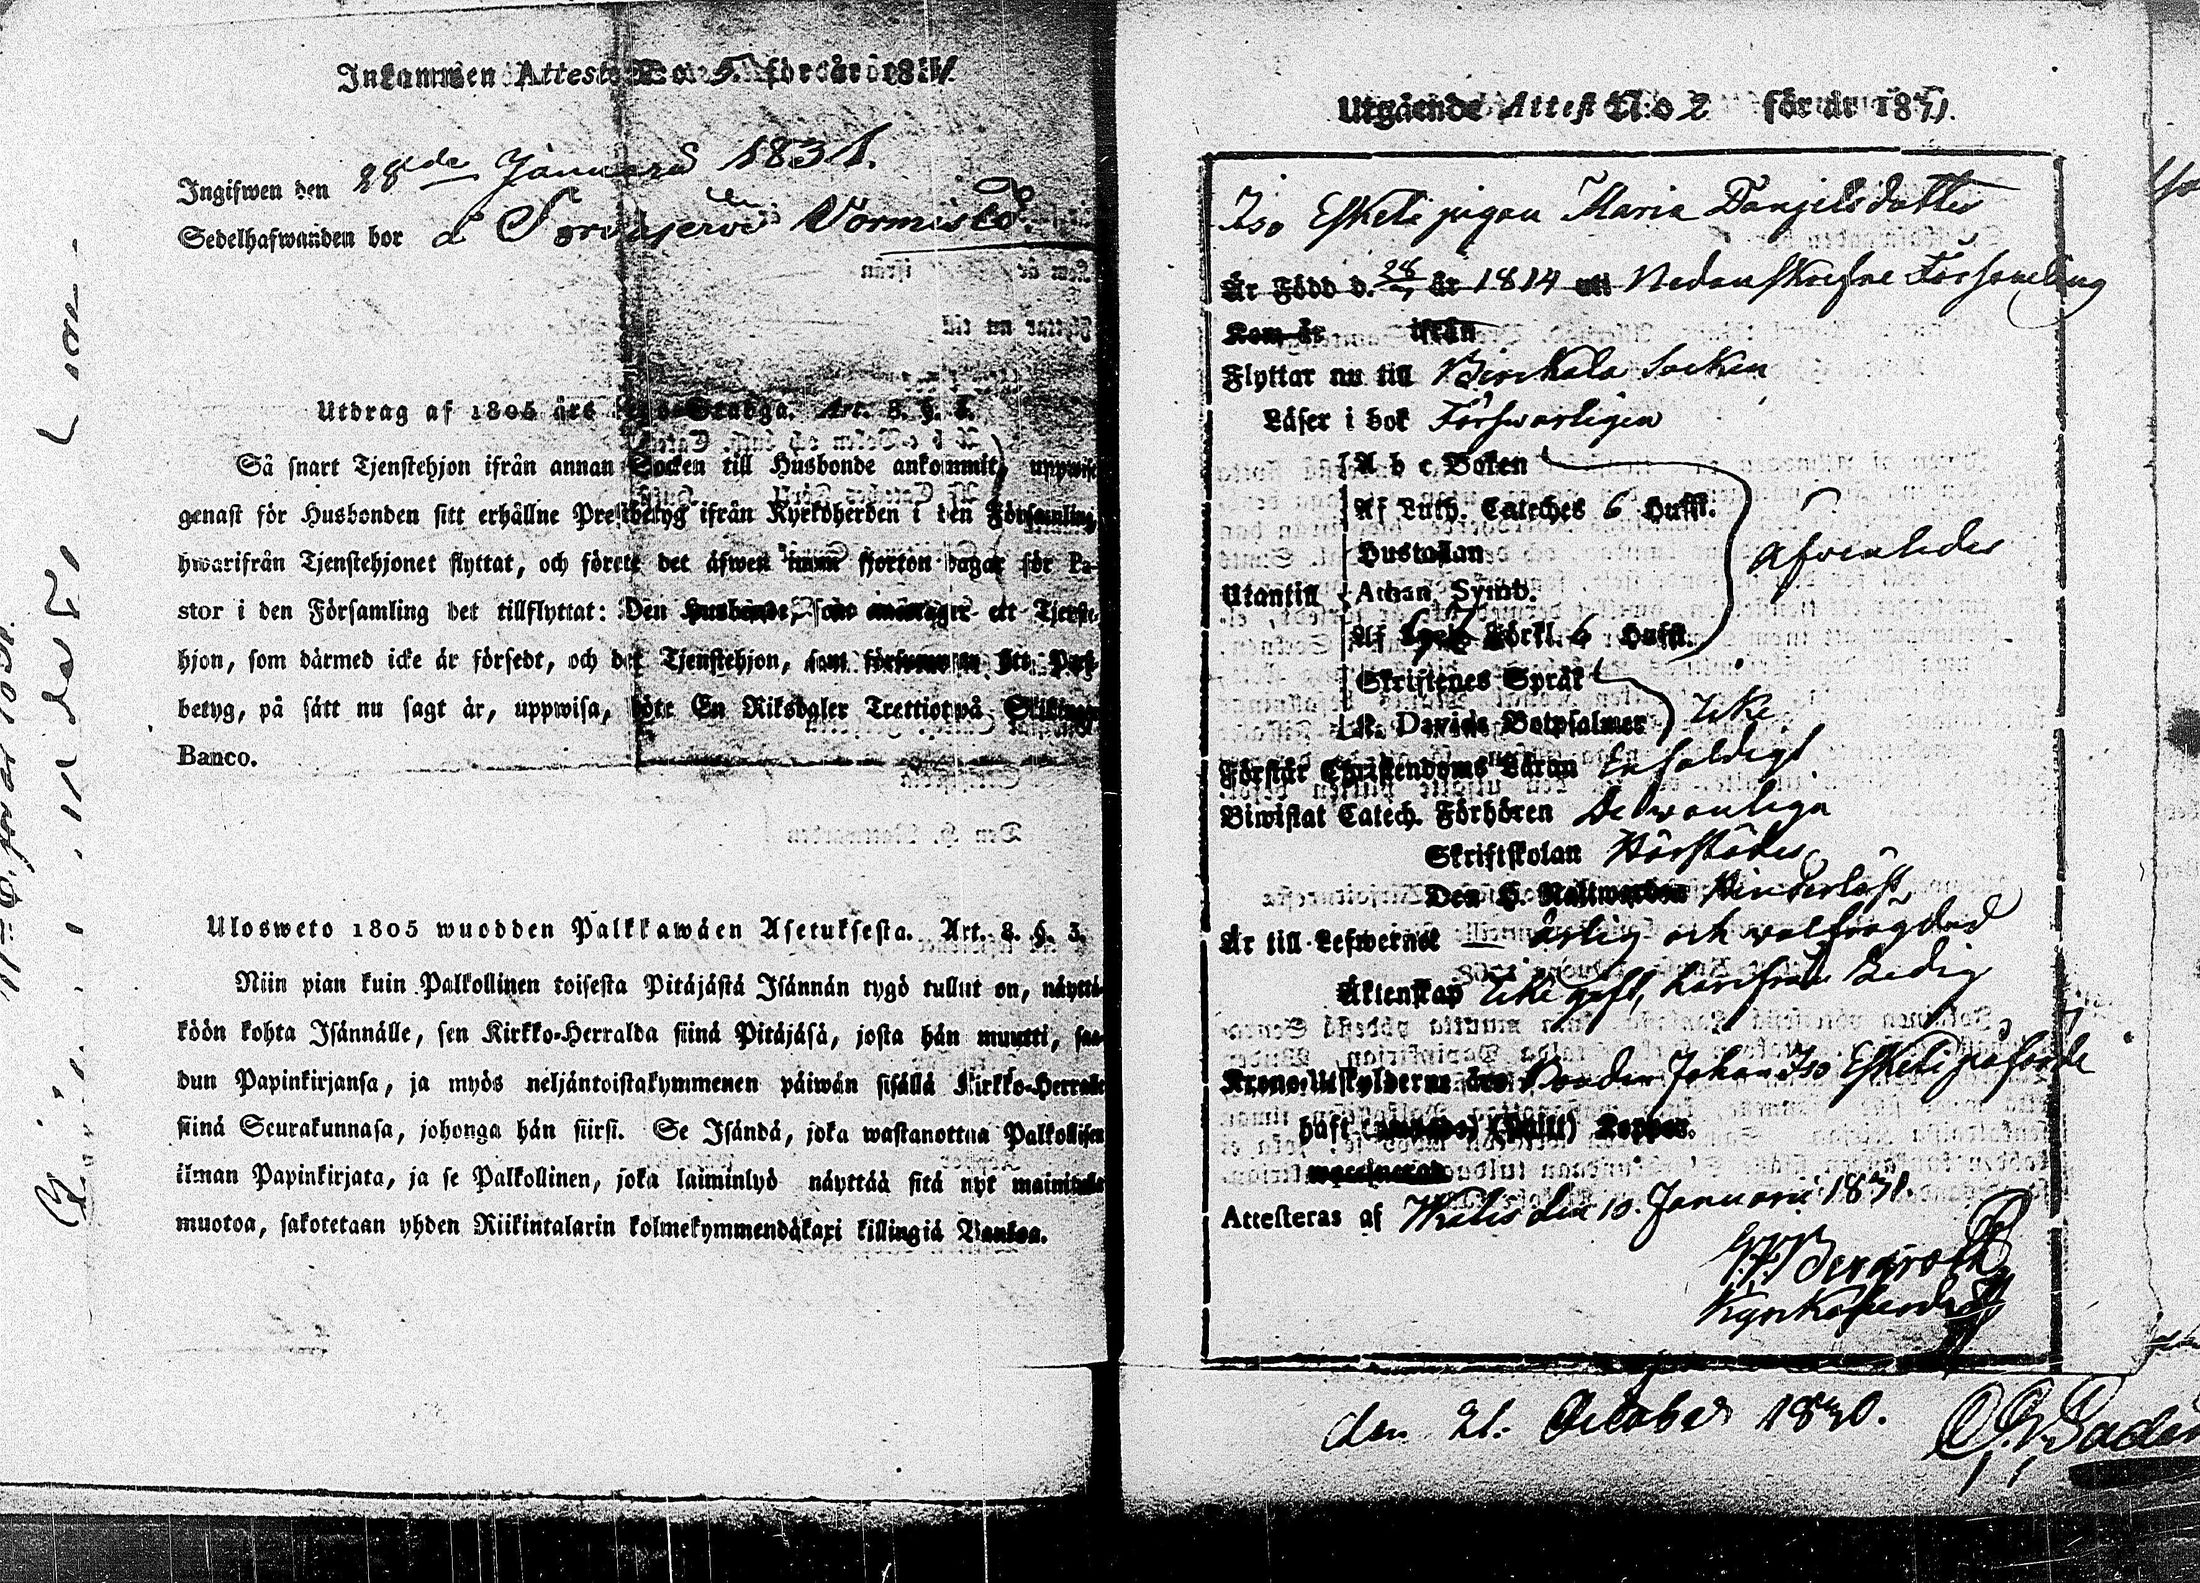 Inkommen Attest N:o 5. för år 1831.
Ingifwen den 28de Januarii 1831.
Sedelhafwanden bor å
Utdrag af 1805 års Stadga. Art. 8. §. 3.
Så snart Tjenstehjon ifrån annan Socken till Husbonde ankommit, uppwise
genast för Husbonden sitt erhållne Prestbetyg ifrån Kyrkoherden i den Församling,
hwarifrån Tjenstehjonet flyttat, och förete det äfwen inom fjorton dagar för Pa-
stor i den Församling det tillflyttat: Den Husbonde, som antager ett Tjenste-
hjon, som därmed icke är försedt, och det Tjenstehjon, som försummar att Prest-
betyg, på sätt nu sagt är, uppwisa, böte En Riksdaler Trettiotwå Skillingar
Banco.
Ulosweto 1805 wuodden Palkkawäen Asetuksesta. Art. 8. §. 3.
Niin pian kuin Palkollinen toisesta Pitäjästä Isännän tygö tullut on, näyttä-
köön kohta Isännälle, sen Kirkko-Herralda siinä Pitäjäsä, josta hän muutti, saa-
dun Papinkirjansa, ja myös neljäntoistakymmenen päiwän sisällä Kirkko-Herralle
siinä Seurakunnasa, johonga hän siirsi. Se Isändä, joka wastanottaa Palkollisen
ilman Papinkirjata, ja se Palkollinen, joka laiminlyö näyttää sitä nyt mainitulla
muotoa, sakotetaan yhden Riikintalarin kolmekymmendäkaxi killingiä Bankoa.
Utgående Attest N:o 2 för år 1831.
Iso Eskeli pigan Maria Danjelsdotter
Är Född d. 28 år 1814 uti Nedanskrefne Församling
Kom år ifrån
Flyttar nu till Birkala Socken
Läser i bok Förswarligen
A b c Boken
Af Luth. Cateches 6 Hufst.
Hustaflan
Utantill Athan. Symb.
Af Förkl. 6 Hufst.
Skriftenes Språk
K. Davids Botpsalmer Icke
Förstår Christendoms Läran Enfaldigt
Biwistat Catech. Förhören De wanliga
Skriftskolan
Den H. Nattwarden Hinderlöst
Är till Lefwernet ärlig och wälfrägdad
Äktenskap Icke gift, härifrån Ledig
Krono Utskylderne Bonden Johan Iso Eskeli påförde
haft Koppor.
vaccinerad
Attesteras af den 10 Januarii 1831.
Bergroth
Kyrkoherde
den 21. October 1830.